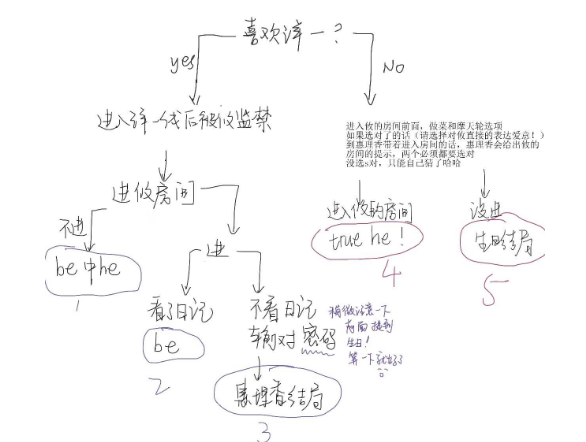 喜欢谆一?
yes
No
进入谆一线后被攸监禁
进入攸的房间前面,做菜和摩天轮选项
如果选对了的话(请选择对攸直接的表达爱意!)
到惠理香带着进入房间的话,惠理香会给出攸的
房间的提示,两个必须都要选对
没选s对,只能自己猜了哈哈
进攸房间
不进
进
进入攸的房间
没进
be中he
true he!
生日结局
1
4
5
看了日记
不看日记
输对密码
稍微注意一下
有面提到
生日!
算一下就出了
be
2
惠理香结局
3